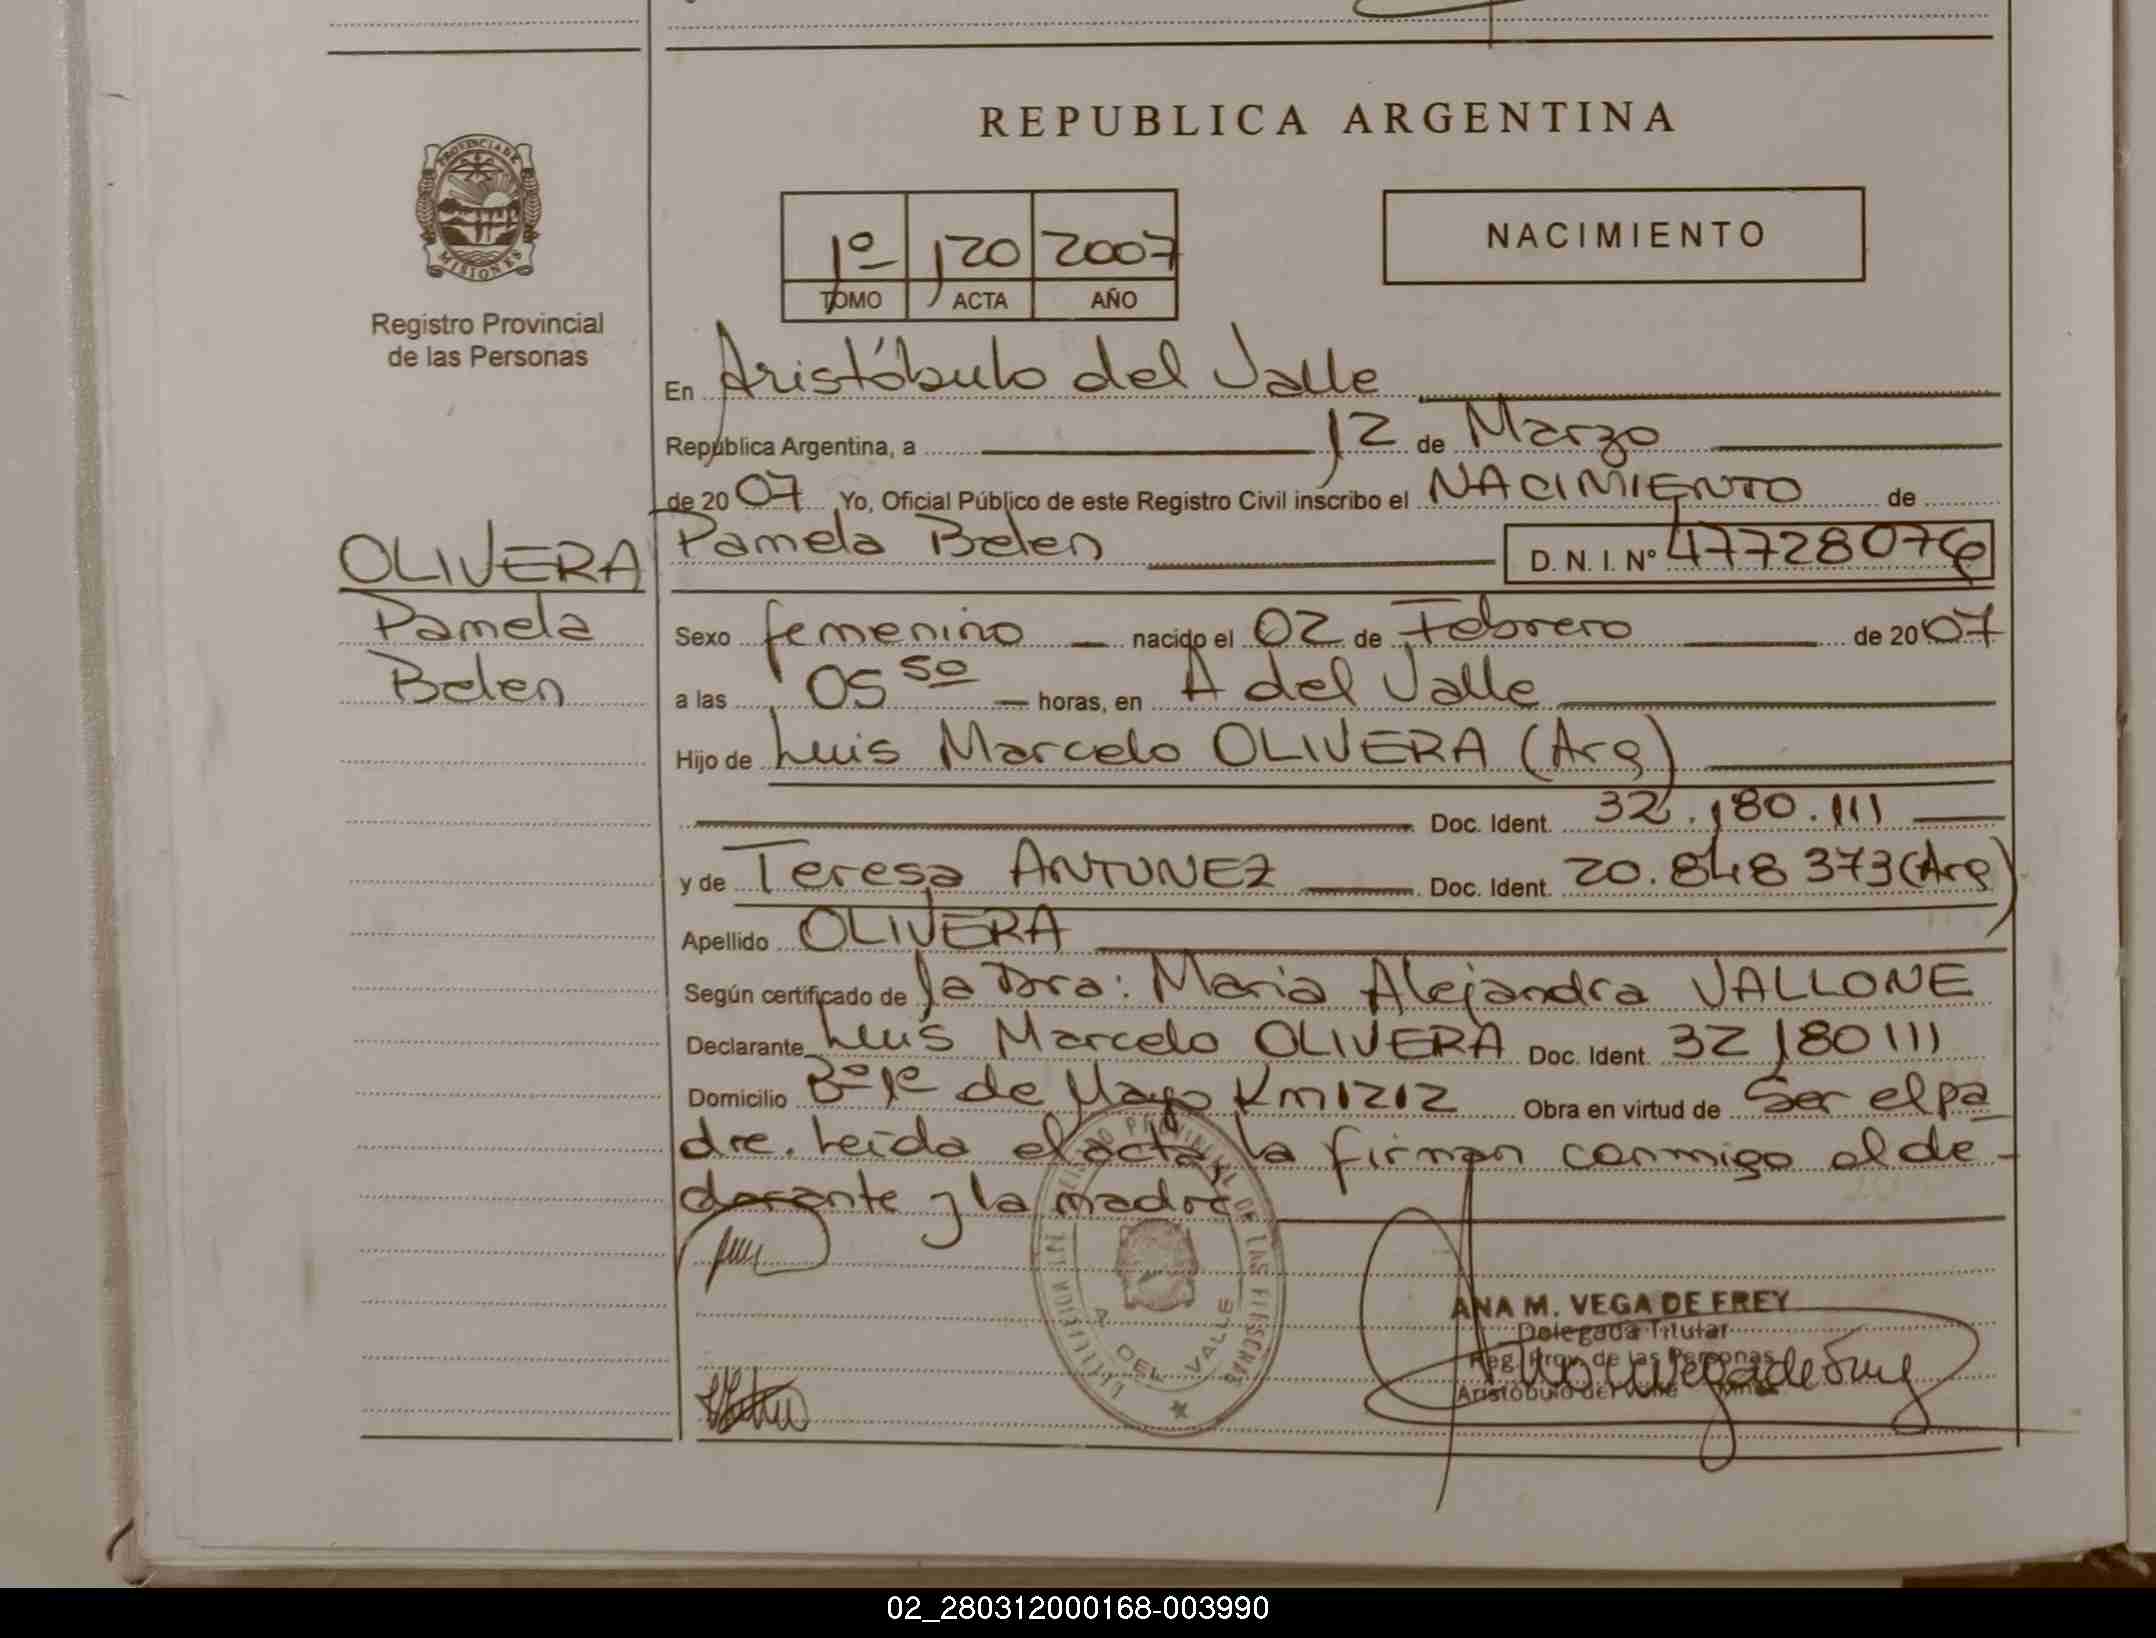 REPUBLICA ARGENTINA
PROVINCIA DE
MISIONES
Registro Provincial
de las Personas
1º 120 2007
TOMO ACTA AÑO
NACIMIENTO
En Aristóbulo del Valle
República Argentina, a 12 de Marzo
de 2007 Yo, Oficial Público de este Registro Civil inscribo el NACIMIENTO de
OLIVERA
Pamela
Belen
Pamela Belen D. N. I. Nº 47728076
Sexo femenino nacido el 02 de Febrero de 2007
a las 05 50 horas, en A del Valle
Hijo de Luis Marcelo OLIVERA (Arg)
Doc. Ident. 32.180.111
y de Teresa ANTUNEZ Doc. Ident. 20.848 373 (Arg)
Apellido OLIVERA
Según certificado de la Dra: Maria Alejandra VALLONE
Declarante Luis Marcelo OLIVERA Doc. Ident. 32 180 111
Domicilio Bº 1º de Mayo Km 1212 Obra en virtud de Ser el pa
dre. Leida el acta, la firman conmigo el de-
clarante y la madre
PROVINCIAL DE LAS PERSONAS
A. DEL VALLE
ANA M. VEGA DE FREY
Delegada Titular
Reg. Prov. de las Personas
Aristóbulo del Valle
02_280312000168-003990